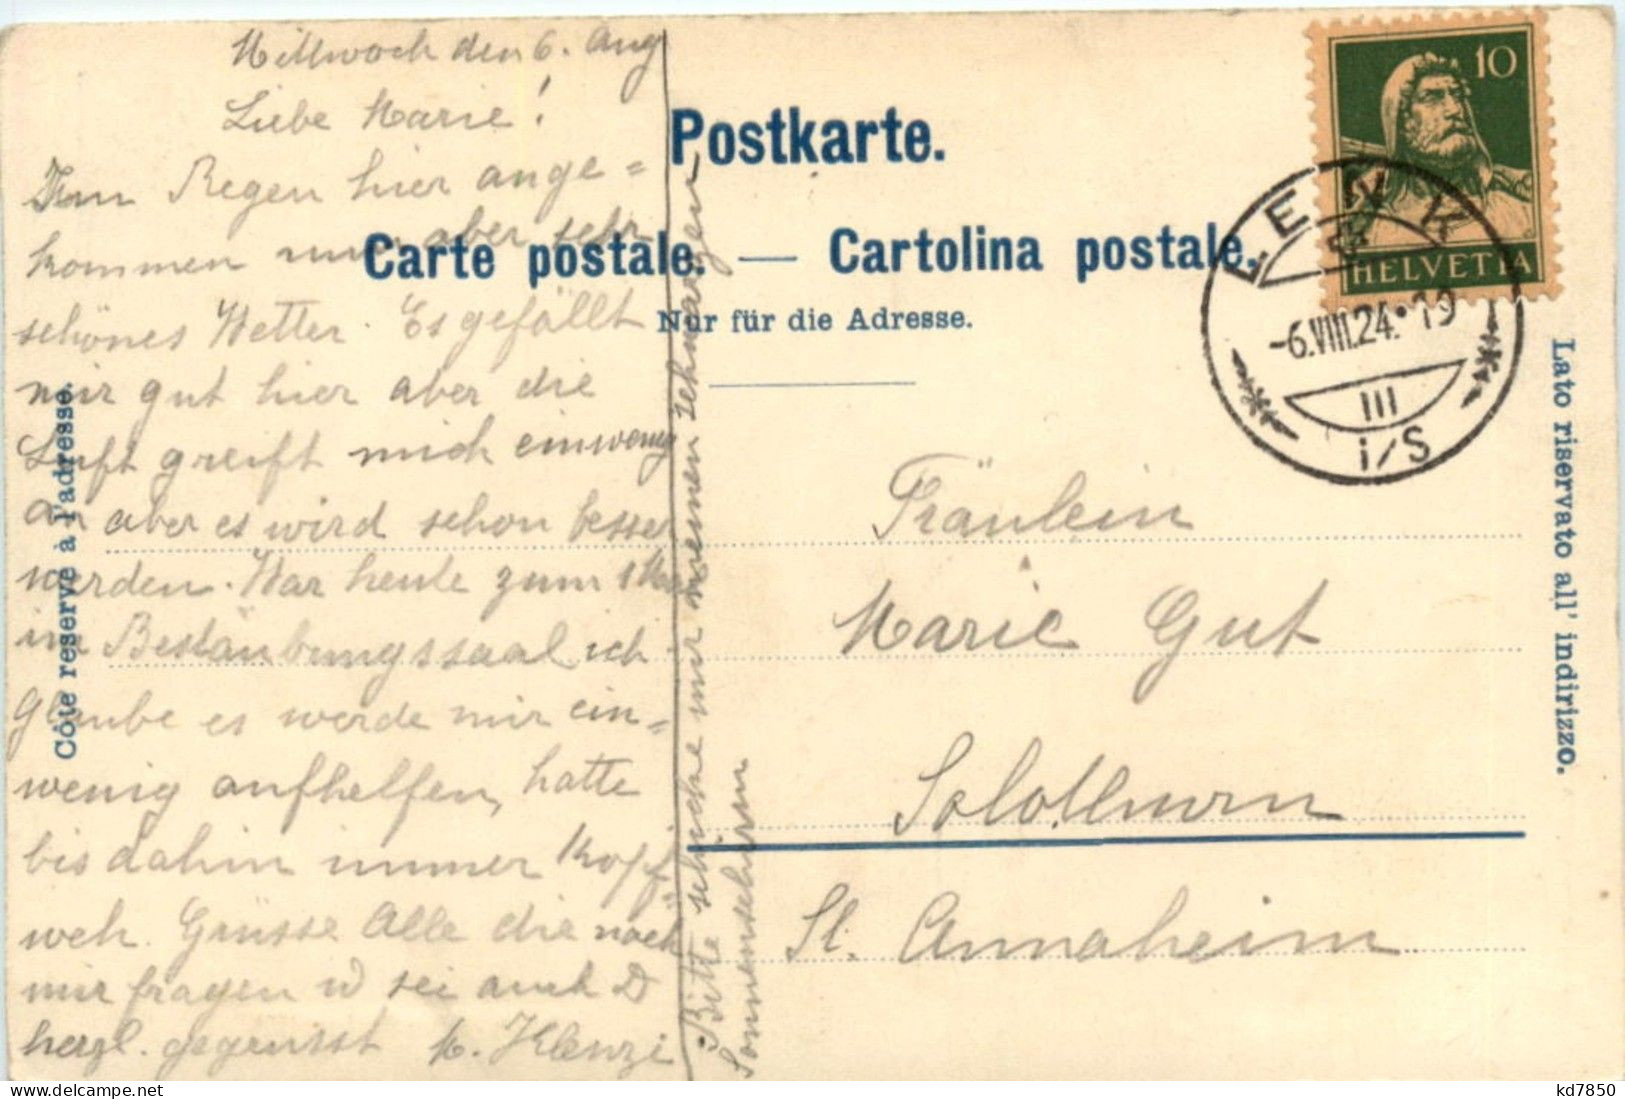 Mittwoch den 6. Aug
Liebe Marie!
Im Regen hier ange=
kommen nun aber sehr
schönes Wetter. Es gefällt
mir gut hier aber die
Luft greift mich einwenig
an aber es wird schon besser
werden. War heute zum 1 Mal
im Bestäubungssaal ich
glaube es werde mir ein=
wenig aufhelfen, hatte
bis dahin immer Kopf=
weh. Grüsse Alle die nach
mir fragen u sei auch D
herzl. gegrüsst M. Klenzi
Bitte schicke mir meinen schwarzen
Sonnenschirm
Postkarte.
Carte postale. — Cartolina postale.
Nur für die Adresse.
Côté réservé à l'adresse.
Lato riservato all' indirizzo.
10
HELVETIA
LENK
-6.VIII.24.•19
III
i/S
Fräulein
Marie Gut
Solothurn
St. Annaheim
kd7850